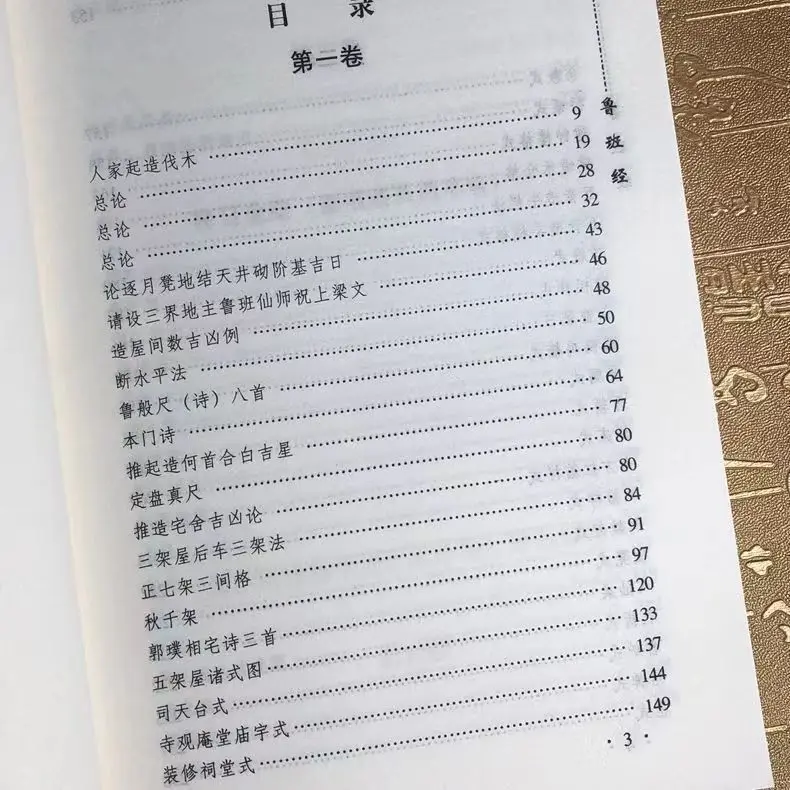 目 录
第一卷
人家起造伐木 9
总论 19
总论 28
总论 32
论逐月凳地结天井砌阶基吉日 43
请设三界地主鲁班仙师祝上梁文 46
造屋间数吉凶例 48
断水平法 50
鲁般尺（诗）八首 60
本门诗 64
推起造何首合白吉星 77
定盘真尺 80
推造宅舍吉凶论 80
三架屋后车三架法 84
正七架三间格 91
秋千架 97
郭璞相宅诗三首 120
五架屋诸式图 133
司天台式 137
寺观庵堂庙宇式 144
装修祠堂式 149
· 3 ·
鲁班经